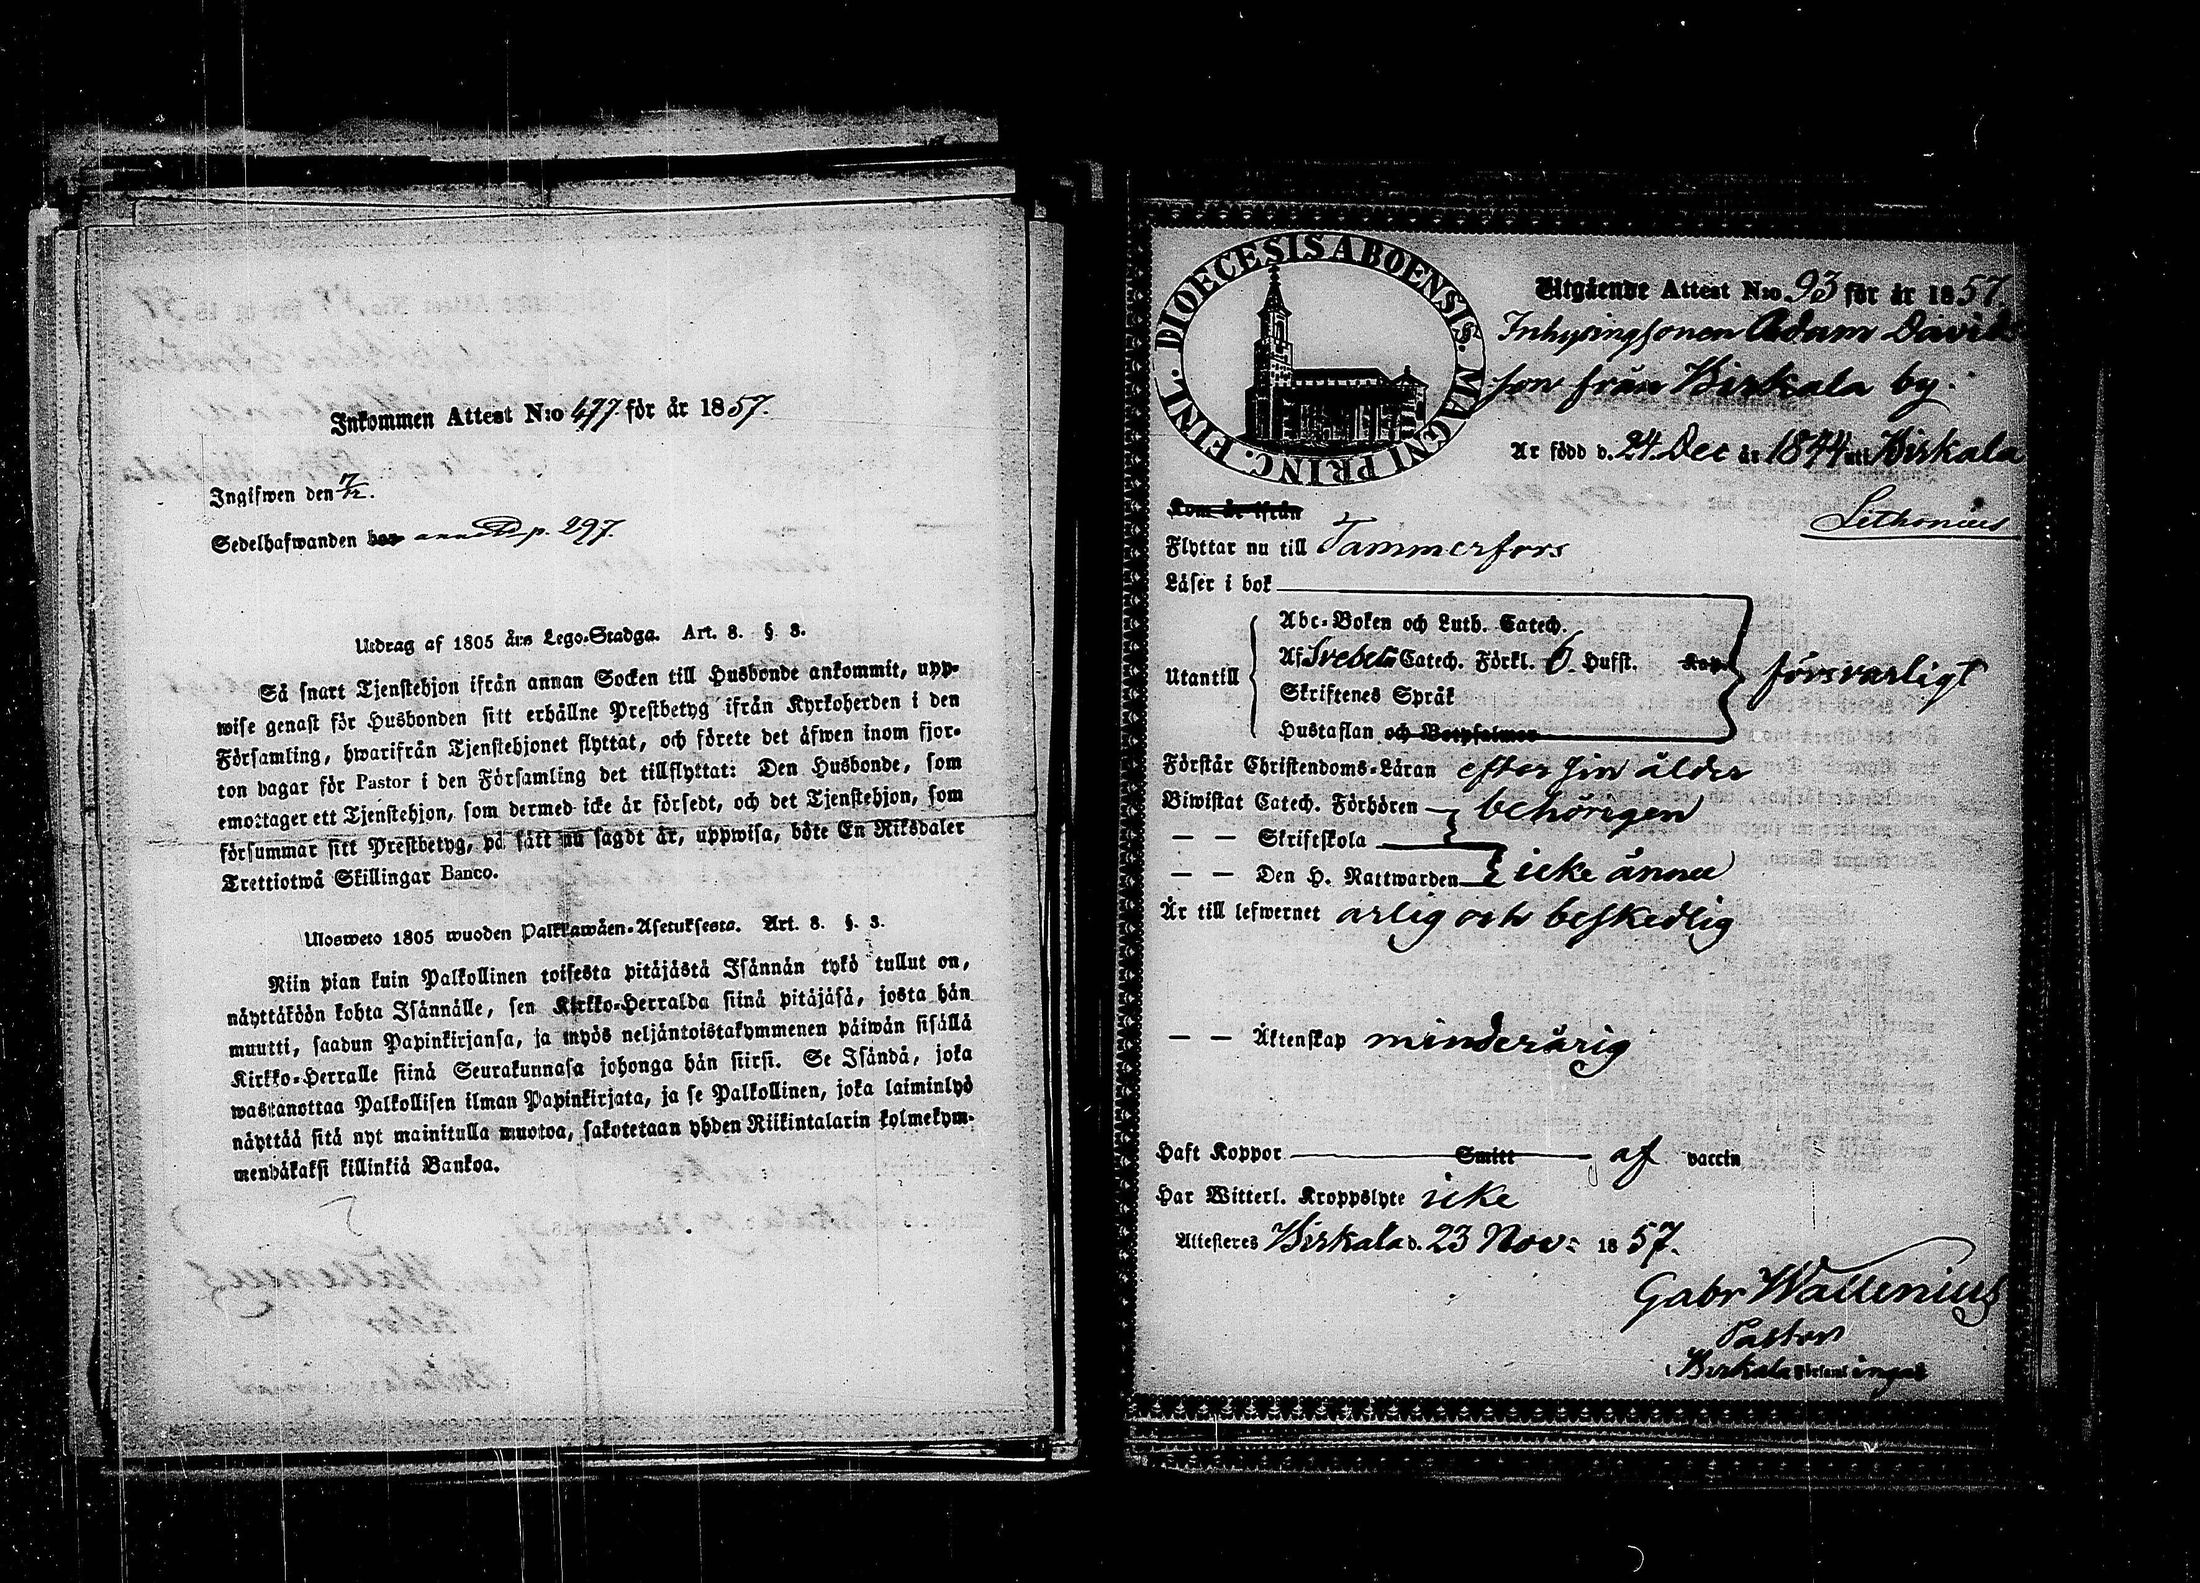 Inkommen Attest N:o 477 för år 1857.
Ingifwen den 7/12.
Sedelhafwanden har p. 297.
Utdrag af 1805 års Lego-Stadga. Art. 8. §. 3.
Så snart Tjenstehjon ifrån annan Socken till Husbonde ankommit, upp-
wise genast för Husbonden sitt erhållne Prestbetyg ifrån Kyrkoherden i den
Församling, hwarifrån Tjenstehjonet flyttat, och förete det äfwen inom fjor-
ton dagar för Pastor i den Församling det tillflyttat: Den Husbonde, som
emottager ett Tjenstehjon, som dermed icke är försedt, och det Tjenstehjon, som
försummar sitt Prestbetyg, på sätt nu sagdt är, uppwisa, böte En Riksdaler
Trettiotwå Skillingar Banco.
Ulosweto 1805 wuoden Palkkawäen-Asetuksesta. Art. 8. §. 3.
Niin pian kuin Palkollinen toisesta pitäjästä Isännän tykö tullut on,
näyttäköön kohta Isännälle, sen Kirkko-Herralda siinä pitäjäsä, josta hän
muutti, saadun Papinkirjansa, ja myös neljäntoistakymmenen päiwän sisällä
Kirkko-Herralle siinä Seurakunnasa johonga hän siirsi. Se Isändä, joka
wastanottaa Palkollisen ilman Papinkirjata, ja se Palkollinen, joka laiminlyö
näyttää sitä nyt mainitulla muotoa, sakotetaan yhden Riikintalarin kolmekym-
mendäkaksi killinkiä Bankoa.
DIOECESIS ABOENSIS. MAGNI PRINC. FINL.
Utgående Attest N:o 93 för år 1857.
Inhysingsonen Adam Davids
son från Birkala by.
Är född d. 24 Dec år 1844 uti Birkala
Lithonius
Kom är ifrån
Flyttar nu till Tammerfors
Läser i bok
Utantill
Abc-Boken och Luth. Catech.
Af Svebeli Catech. Förkl. 6. Hufst. Kap.
Skriftenes Språk
Hustaflan och Botpsalmer
försvarligt
Förstår Christendoms-Läran efter sin ålder
Biwistat Catech. Förhören behörigen
— — Skriftskola
— — Den H. Nattwarden icke ännu
Är till lefwernet ärlig och beskedlig
— — Äktenskap minderårig
Haft Koppor Smitt af vaccin
Har Witterl. Kroppslyte icke
Attesteres Birkala d. 23 Nov: 1857.
Gabr Wallenius
Pastor
i Birkala Församlingar